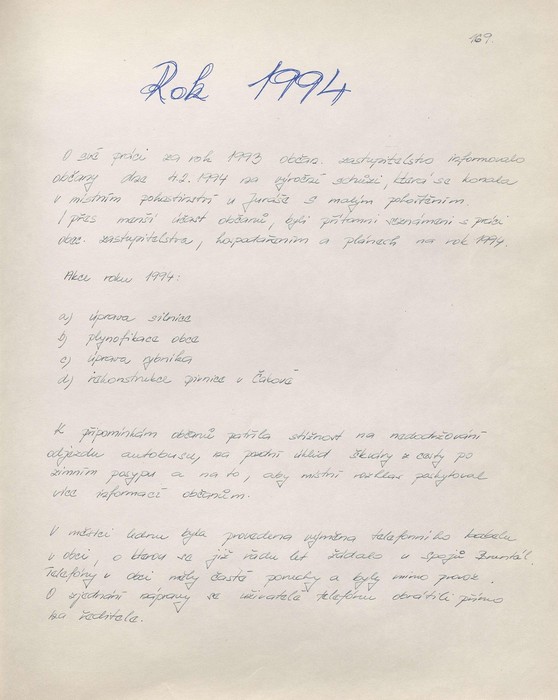 169.
Rok 1994
O své práci za rok 1993 občan. zastupitelstvo informovalo
občany dne 4.2.1994 na výroční schůzi, která se konala
v místním pohostinství u Juraše s malým pohoštěním.
I přes menší účast občanů, byli přítomni seznámeni s prácí
obec. zastupitelstva, hospodařením a plánech na rok 1994.
Akce roku 1994:
a) úprava silnice
b) plynofikace obce
c) úprava rybníka
d) rekonstrukce pivnice v Čakové
K připomínkám občanů patřila stížnost na nedodržování
odjezdu autobusu, za pozdní úklid škváry z cesty po
zimním posypu a na to, aby místní rozhlas poskytoval
více informací občanům.
V měsíci lednu byla provedena výměna telefonního kabelu
v obci, o kterou se již řadu let žádalo u Spojů Bruntál.
Telefóny v obci měly časté poruchy a byly mimo provoz.
O zjednání nápravy se uživatelé telefónu obrátili přímo
na ředitele.